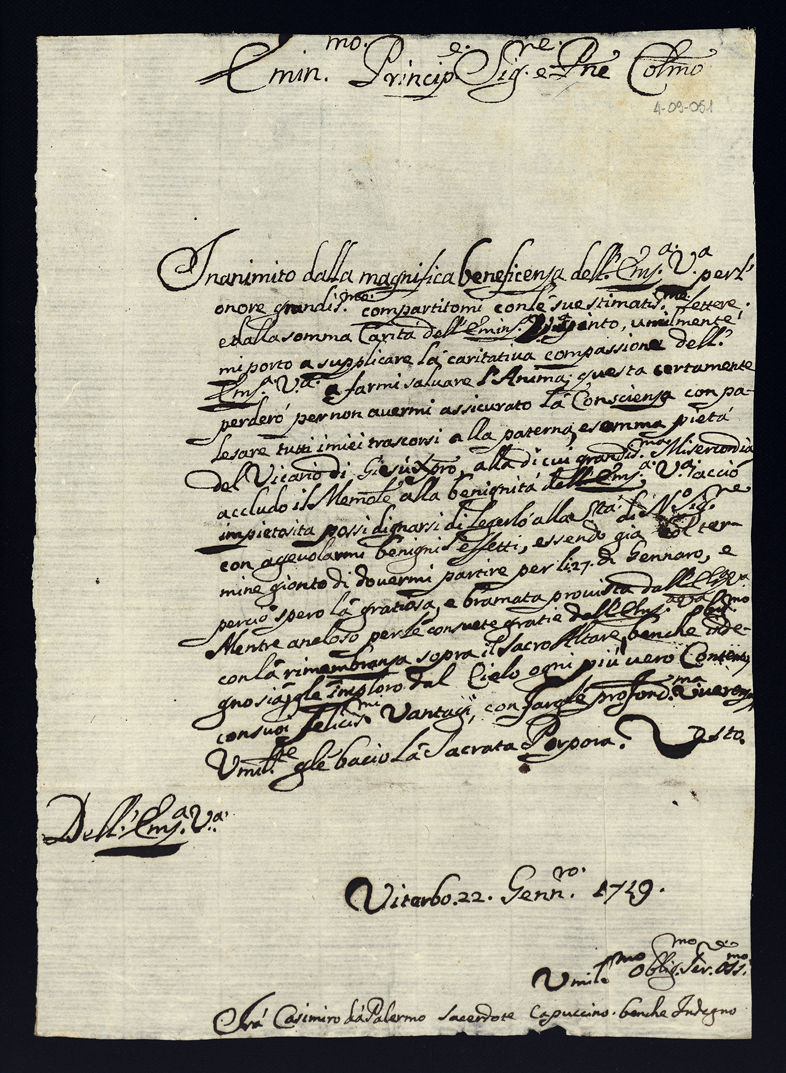 Emin.mo Princip.e Sig.e Pne Colmo
4-09-051
Inanimito dalla magnifica beneficensa dell'Ems.a V.a per l'
onore grandis.mo compartitomi con le sue stimatis.me lettere.
e dalla somma Carità dell'Emins.a spinto, umilmente
mi porto a supplicare la caritativa compassione dell'
Ems.a V.a a farmi saluare l'Anima; questa certamente
perderò per non auermi assicurato la Consciensa con pa-
lesare tutti i miei trascorsi alla paterna, e somma pietà
del Vicario di Giesù Xpro, alla di cui grandis.ma Misericordia
accludo il Memole alla benignità dell'Ems.a V.a acciò
impietosita possi dignarsi di legerlo alla Stà di N.o Sig.re
con ageuolarmi benigni effetti, essendo già il ter-
mine gionto di douermi partire per li 27. di Gennaro, e
perciò spero la gratiosa, e bramata prouista dall'
Mentre aneloso per le consuete gratie dell'Ems.a V.a
con la rimembransa sopra il Sacro Altare, benche inde-
gno sia, gle imploro dal Cielo ogni più uero Contento
con suoi felicis.mi Vantagi, con fargle profond.ma riuerensa
Umil.te gle bacio la Sacrata Porpora. Resto.
Dell'Ems.a V.a
Viterbo. 22. Genn.ro 1749.
Umil.mo Oblig.mo Ser.e oss.mo
Frà Casimiro da Palermo Sacerdote Capuccino benche Indegno